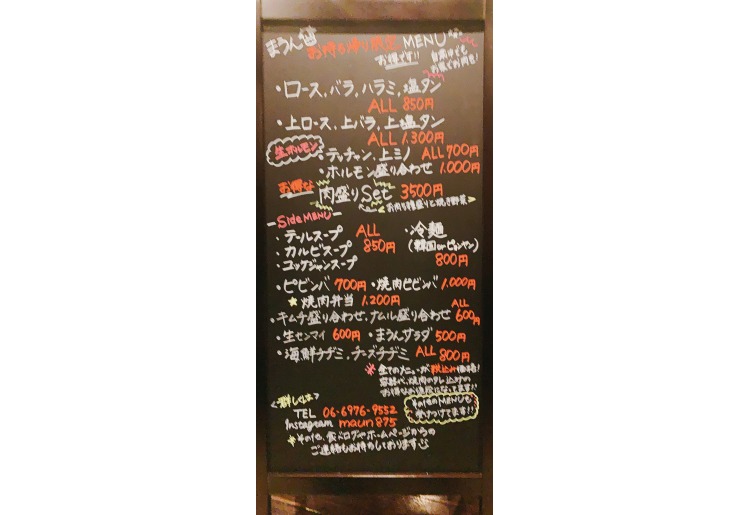 まうん お持ち帰り MENU
お得です!!
・ロース,バラ,ハラミ,塩タン
ALL 850円
・上ロース,上バラ,上塩タン
ALL 1.300円
生ホルモン
・テッチャン,上ミノ ALL 700円
・ホルモン盛り合わせ 1.000円
お得な 肉盛りSet 3500円
お肉5種盛りと焼き野菜
Side MENU
・テールスープ
・カルビスープ
・ユッケジャンスープ
ALL 850円
・冷麺
(韓国orピョンヤン)
800円
・ビビンバ 700円 ・焼肉ビビンバ 1.000円
★焼肉弁当 1.200円
・キムチ盛り合わせ,ナムル盛り合わせ ALL 600円
・生センマイ 600円 ・まうんサラダ 500円
・海鮮チヂミ,チーズチヂミ ALL 800円
※全てのメニューが税込み価格!
お得なお値段になってます!!
その他のMENUも
受けつけてます!!
<詳しくは>
TEL 06-6976-9552
Instagram maun875
※その他,食べログやホームページからの
ご連絡もお待ちしております